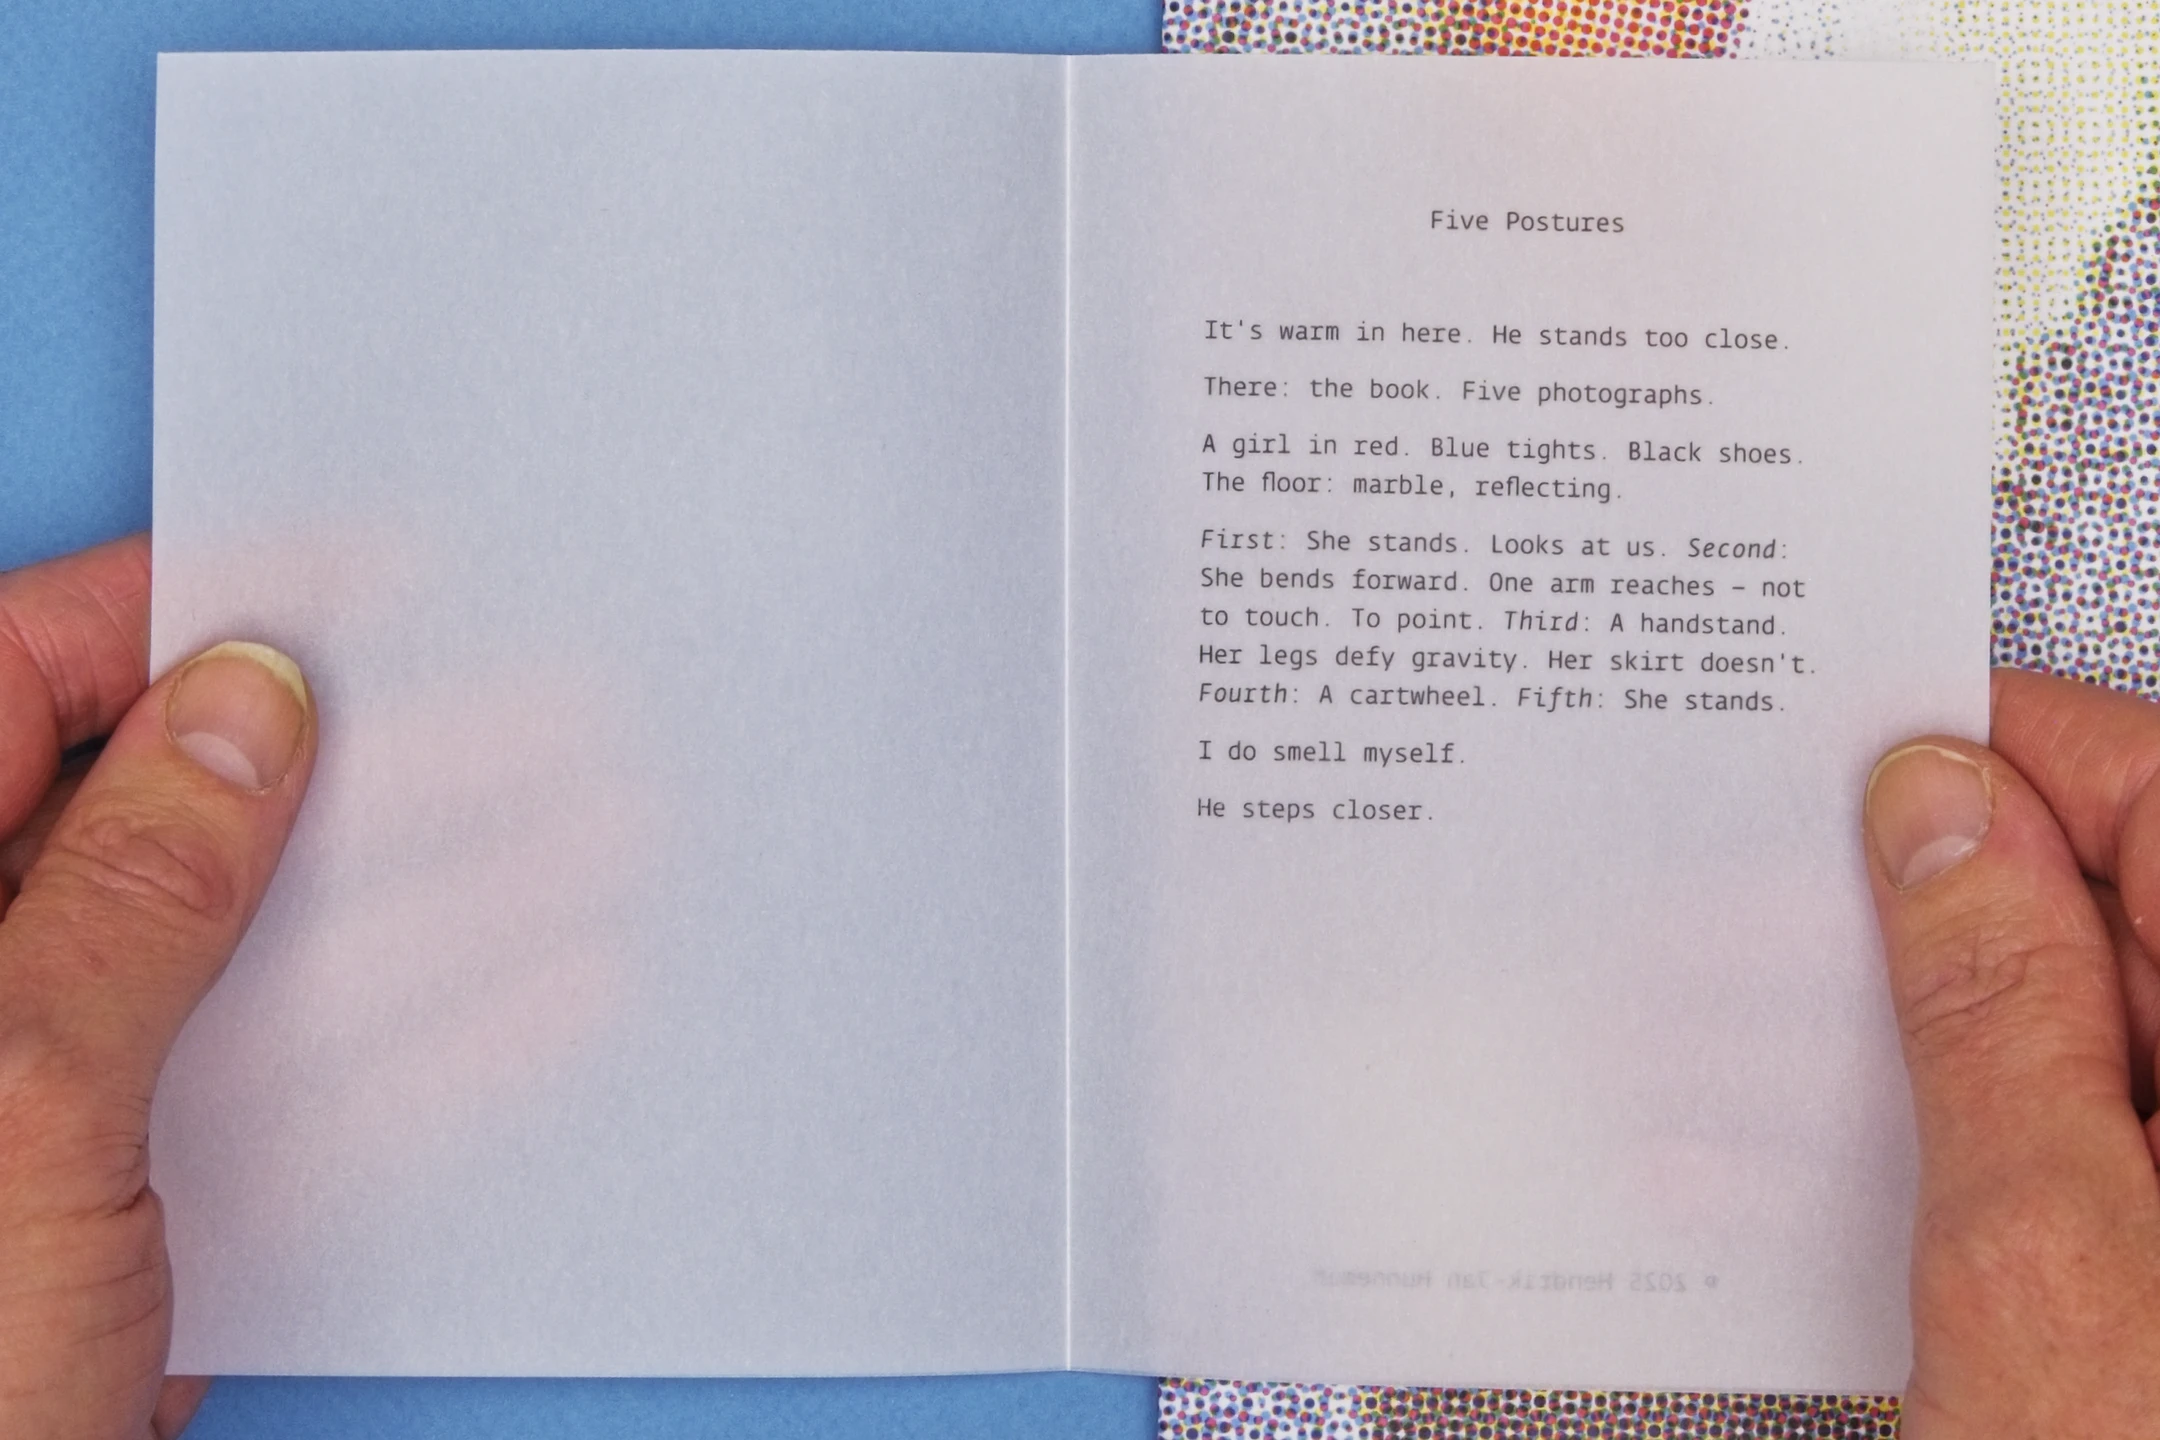 Five Postures
It's warm in here. He stands too close.
There: the book. Five photographs.
A girl in red. Blue tights. Black shoes.
The floor: marble, reflecting.
First: She stands. Looks at us. Second:
She bends forward. One arm reaches – not
to touch. To point. Third: A handstand.
Her legs defy gravity. Her skirt doesn't.
Fourth: A cartwheel. Fifth: She stands.
I do smell myself.
He steps closer.
© 2025 Hendrik-Jan Hunneman